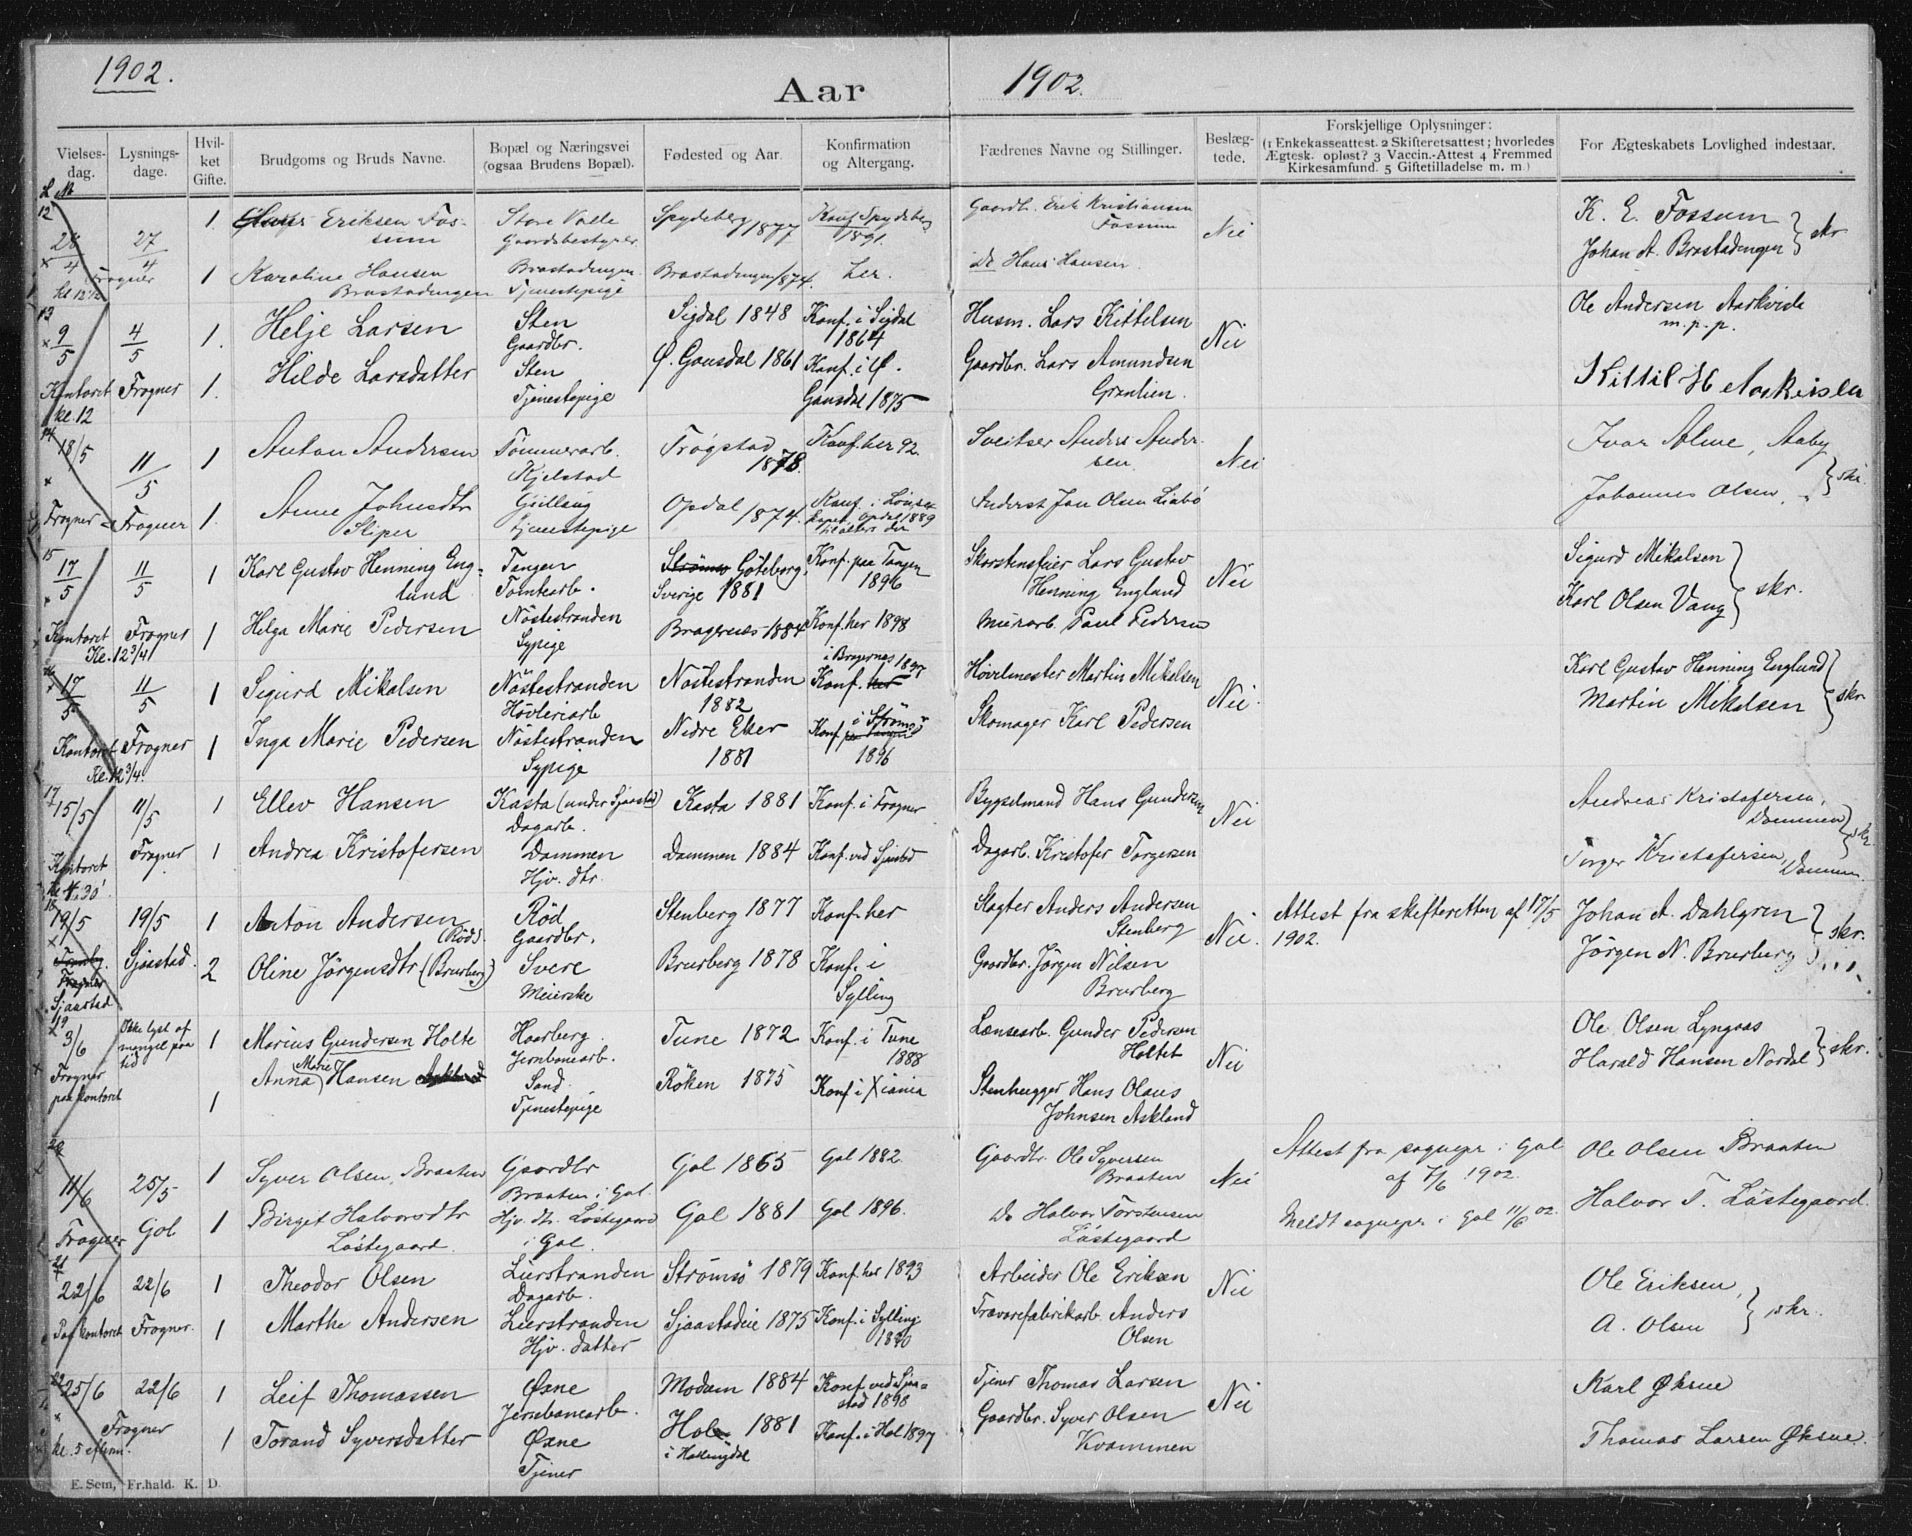 1902.
Aar
1902.
Vielsesdag. Lysningsdage. Hvilket Gifte. Brudgoms og Bruds Navne. Bopæl og Næringsvei (ogsaa Brudens Bopæl). Fødested og Aar. Konfirmation og Altergang. Fædrenes Navne og Stillinger. Beslægtede. Forskjellige Oplysninger: (1 Enkekasseattest. 2 Skifteretsattest; hvorledes Ægtesk. opløst? 3 Vaccin.-Attest 4 Fremmed Kirkesamfund. 5 Giftetilladelse m. m.) For Ægteskabets Lovlighed indestaar.
12
28/4 27/4 1 Eriksen Fossum Store Valle Gaardsbestyrer Spydeberg 1877 Konf. Spydeberg 1891. Gaardb. Erik Kristiansen Fossum Nei K. E. Fossum
Frogner kl. 12 1/2 1 Karoline Hansen Brastadengen Brastadengen Tjenestepige Brastadengen 1874. Do Hans Hansen. Johan A. Brastadengen } skr
13
9/5 4/5 1. Helje Larsen Sten Gaardbr. Sigdal 1848 Konf. i Sigdal 1864 Husm. Lars Kittelsen Nei Ole Andersen Aarkvisle m.p.p.
Kontoret kl. 12 Frogner 1. Hilde Larsdatter Sten Tjenestepige Ø. Gausdal 1861 Konf. i Ø. Gausdal 1875 Gaardbr. Lars Amundsen Kittil H
14
18/5 11/5 1 Anton Andersen Tømmerarb. Kjelstad Trøgstad 1878. Konf. her 92. Sveitser Anders Andersen Nei Ivar Alme, Aaby
Frogner Frogner 1. Anne Johnsdtr Sliper Gulliaug tjenestepige Opdal 1874. Konf. i Opdal 1889 Jon Olsen Liabø Johannes Olsen } skr.
15
17/5 11/5 1 Karl Gustav Henning Englund Tangen Tomtearb. Strømsø Göteborg, Sverige 1881 Konf. paa Tangen 1896 Skorstensfeier Lars Gustav Henning Englund Nei Sigurd Mikalsen
Kontoret Kl. 12 3/4 Frogner 1 Helga Marie Pedersen Nøstestranden Sypige Bragernes 1884 Konf. her 1898 Murarb. Paul Pedersen Karl Olsen Vang } skr.
16
17/5 11/5 1 Sigurd Mikalsen Nøstestranden Høvleriarb Nøstestranden 1882 i Bragernes 1897 Konf. her Høvelmester Martin Mikalsen Nei. Karl Gustav Henning Englund
Kontoret Kl. 12 3/4. Frogner 1 Inga Marie Pedersen Nøstestranden Sypige Nedre Eker 1881 Konf. i Strømsø paa Tangen 1896 Skomager Karl Pedersen Martin Mikalsen } skr
17
15/5 11/5 1 Ellev Hansen Kasta (under Sjaastad) Dagarb. Kasta 1881 Konf. i Frogner Bygselmand Hans Gundersen Nei Andreas Kristofersen, Dammen
Kontoret kl 4.30' Frogner 1 Andrea Kristofersen Dammen Hjv. dtr. Dammen 1884 Konf. ved Sjaastad Dagarb. Kristofer Torgersen Torger Kristofersen, Dammen } skr.
18
19/5 19/5 1 Anton Andersen (Rød). Rød Gaardbr. Stenberg 1877 Konf. her Slagter Anders Andersen Stenberg Nei. Attest fra skifteretten af 17/5 1902. Johan A. Dahlgren
Frogner Sjaastad Sjaastad 2 Oline Jørgensdtr (Brurberg) Svere Meierske Brurberg 1878 Konf. i Sylling Gaardbr. Jørgen Nilsen Brurberg Jørgen N. Brurberg } skr.
19
3/6 Ikke lyst af mangel paa tid 1 Marius Gundersen Holte Haarberg Jernbanearb. Tune 1872 Konf. i Tune 1888 Lænsearb. Gunder Pedersen Holtet Nei Ole Olsen Lyngaas
Frogner paa kontoret 1 Anna Marie Hansen Sand Tjenestepige Røken 1875 Konf. i Xiania Stenhugger Hans Olaus Johnsen Askland Harald Hansen Nordal } skr.
20
11/6 25/5 1 Syver Olsen Braaten Gaardbr Braaten i Gol. Gol 1865 Gol 1882. Gaardbr. Ole Syversen Braaten Nei Attest fra sognepr. i Gol af 7/6 1902. Ole Olsen Braaten
Frogner Gol 1 Birget Halvorsdtr Løstegaard. Hjv. dtr. Løstegaard i Gol. Gol 1881 Gol 1896. Do Halvor Torstensen Løstegaard Meldt sognepr. i Gol 11/6 02. Halvor T. Løstegaard
21
22/6 22/6 1 Theodor Olsen Lierstranden Dagarb. Strømsø 1879 Konf. her 1893 Arbeider Ole Eriksen Nei Ole Eriksen,
Paa kontoret Frogner. 1 Marthe Andersen Lierstranden Hjv. datter Sjaastadeie 1875 Konf. i Sylling 1890 Trævarefabrikarb. Anders Olsen A. Olsen } skr.
22
25/6 22/6 1 Leif Thomassen Øxne Jernbanearb. Modum 1884 Konf. ved Sjaastad 1898 Tjener Thomas Larsen Nei Karl Øksne
Frogner kl. 5 efterm. 1 Torand Syversdatter Øxne Tjener Hol 1881 i Hallingdal Konf. i Hol 1897 Gaardbr. Syver Olsen Kvammen Thomas Larsen Øksne.
E. Sem, Fr.hald. K. D.